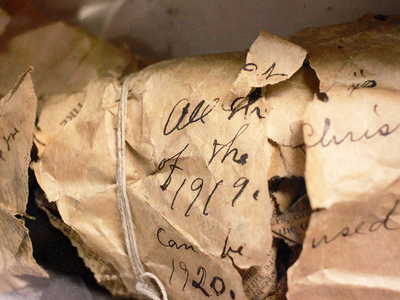 All th
of the Chris
1919.
can be used
1920.